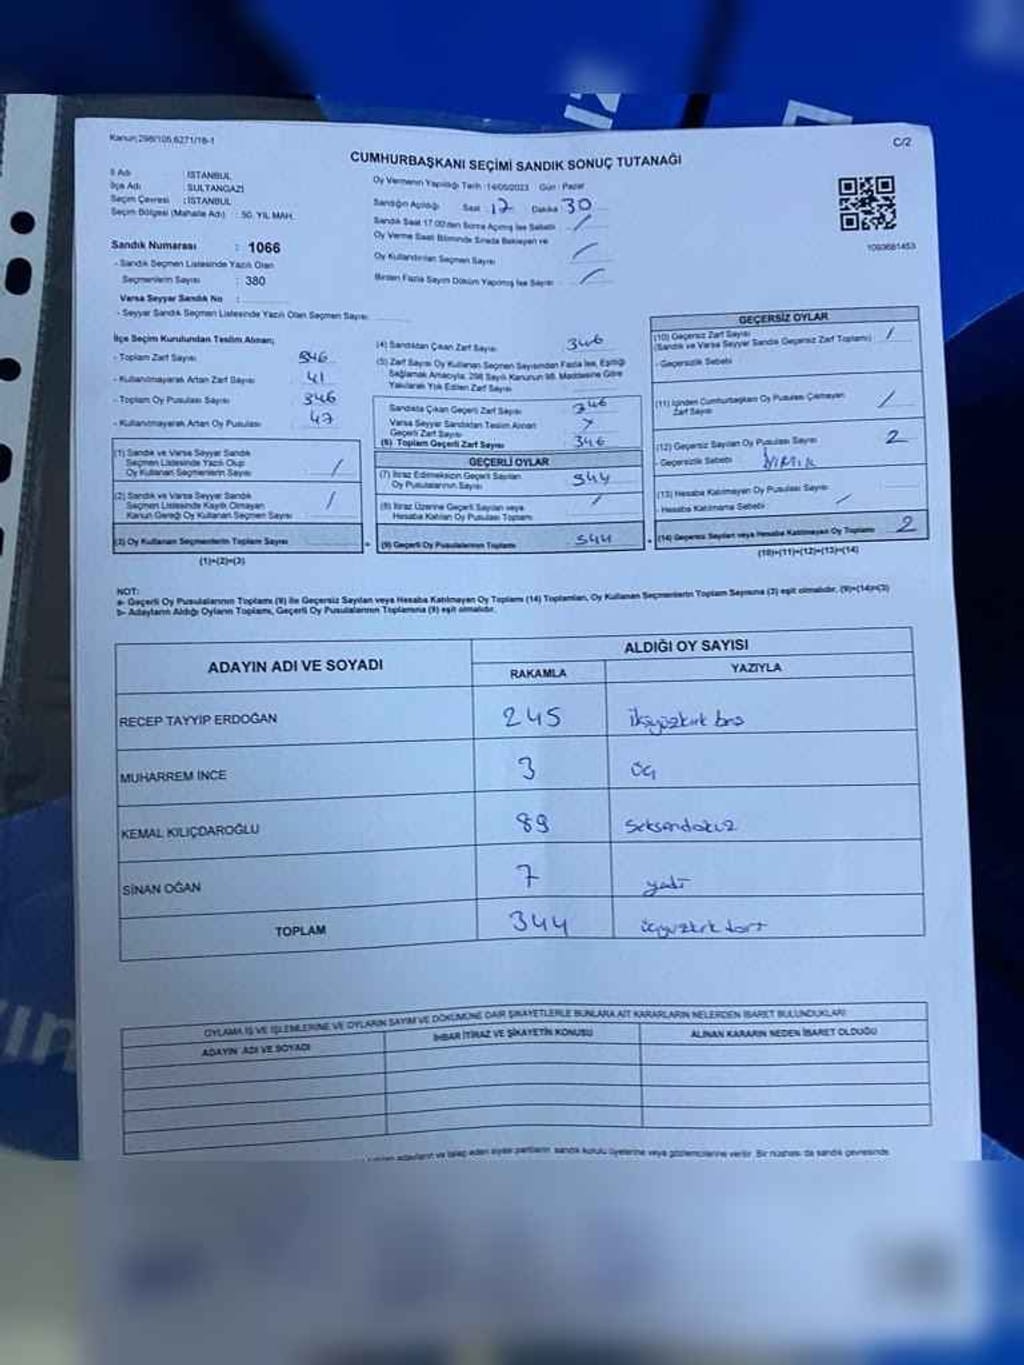 Kanun:298/105,6271/16-1
C/2
CUMHURBAŞKANI SEÇİMİ SANDIK SONUÇ TUTANAĞI
İl Adı : İSTANBUL
İlçe Adı : SULTANGAZİ
Seçim Çevresi : İSTANBUL
Seçim Bölgesi (Mahalle Adı) : 50. YIL MAH.
Oy Vermenin Yapıldığı Tarih :14/05/2023 Gün : Pazar
Sandığın Açıldığı Saat : 17 Dakika 30
Sandık Saat 17.00'den Sonra Açılmış İse Sebebi /
Oy Verme Saati Bitiminde Sırada Bekleyen ve
Oy Kullandırılan Seçmen Sayısı /
Birden Fazla Sayım Döküm Yapılmış İse Sayısı /
1093681453
Sandık Numarası : 1066
- Sandık Seçmen Listesinde Yazılı Olan
Seçmenlerin Sayısı : 380
Varsa Seyyar Sandık No :
- Seyyar Sandık Seçmen Listesinde Yazılı Olan Seçmen Sayısı:
İlçe Seçim Kurulundan Teslim Alınan;
- Toplam Zarf Sayısı
- Kullanılmayarak Artan Zarf Sayısı 41
- Toplam Oy Pusulası Sayısı 346
- Kullanılmayarak Artan Oy Pusulası 47
(1) Sandık ve Varsa Seyyar Sandık
Seçmen Listesinde Yazılı Olup
Oy Kullanan Seçmenlerin Sayısı /
(2) Sandık ve Varsa Seyyar Sandık
Seçmen Listesinde Kayıtlı Olmayan
Kanun Gereği Oy Kullanan Seçmen Sayısı /
(3) Oy Kullanan Seçmenlerin Toplam Sayısı
(1)+(2)=(3)
(4) Sandıktan Çıkan Zarf Sayısı 346
(5) Zarf Sayısı Oy Kullanan Seçmen Sayısından Fazla İse, Eşitliği
Sağlamak Amacıyla, 298 Sayılı Kanunun 98. Maddesine Göre
Yakılarak Yok Edilen Zarf Sayısı
Sandıkta Çıkan Geçerli Zarf Sayısı 346
Varsa Seyyar Sandıktan Teslim Alınan
Geçerli Zarf Sayısı
(6) Toplam Geçerli Zarf Sayısı 346
GEÇERLİ OYLAR
(7) İtiraz Edilmeksizin Geçerli Sayılan
Oy Pusulalarının Sayısı 344
(8) İtiraz Üzerine Geçerli Sayılan veya
Hesaba Katılan Oy Pusulası Toplamı /
(9) Geçerli Oy Pusulalarının Toplamı 344
GEÇERSİZ OYLAR
(10) Geçersiz Zarf Sayısı
(Sandık ve Varsa Seyyar Sandık Geçersiz Zarf Toplamı) /
- Geçersizlik Sebebi
(11) İçinden Cumhurbaşkanı Oy Pusulası Çıkmayan
Zarf Sayısı /
(12) Geçersiz Sayılan Oy Pusulası Sayısı 2
- Geçersizlik Sebebi YIRTIK
(13) Hesaba Katılmayan Oy Pusulası Sayısı
- Hesaba Katılmama Sebebi /
(14) Geçersiz Sayılan veya Hesaba Katılmayan Oy Toplamı 2
(10)+(11)+(12)+(13)=(14)
NOT:
a- Geçerli Oy Pusulalarının Toplamı (9) ile Geçersiz Sayılan veya Hesaba Katılmayan Oy Toplamı (14) Toplamları, Oy Kullanan Seçmenlerin Toplam Sayısına (3) eşit olmalıdır. (9)+(14)=(3)
b- Adayların Aldığı Oyların Toplamı, Geçerli Oy Pusulalarının Toplamına (9) eşit olmalıdır.
ADAYIN ADI VE SOYADI
ALDIĞI OY SAYISI
RAKAMLA YAZIYLA
RECEP TAYYİP ERDOĞAN 245 ikiyüzkırk beş
MUHARREM İNCE 3 üç
KEMAL KILIÇDAROĞLU 89 seksendokuz
SİNAN OĞAN 7 yedi
TOPLAM 344 üçyüzkırk dört
OYLAMA İŞ VE İŞLEMLERİNE VE OYLARIN SAYIM VE DÖKÜMÜNE DAİR ŞİKAYETLERLE BUNLARA AİT KARARLARIN NELERDEN İBARET BULUNDUKLARI
ADAYIN ADI VE SOYADI
İHBAR İTİRAZ VE ŞİKAYETİN KONUSU
ALINAN KARARIN NEDEN İBARET OLDUĞU
adayların ve talep eden siyasi partilerin sandık kurulu üyelerine veya gözlemcilerine verilir. Bir nüshası da sandık çevresinde